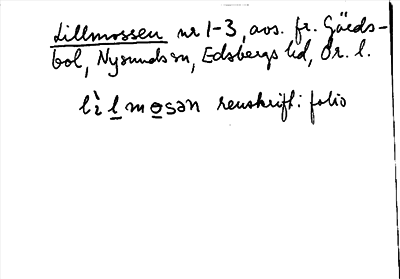 Lillmossen nr 1-3, avs. fr. Gärds-
bol, Nysunds sn, Edsbergs hd, Ör. l.
lìl mosən renskrift: folio